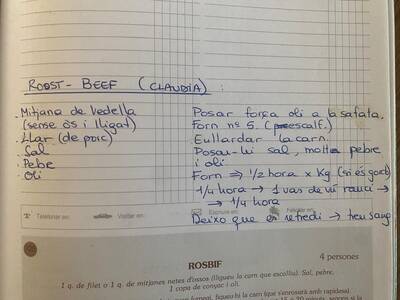 ROOST-BEEF (CLAUDIA):
Mitjana de Vedella
(sense òs i lligat)
Llar (de porc)
Sal
Pebe
Oli
Posar força oli a la safata.
Forn nº 5. (preescalf.)
Enllardar la carn.
Posar-hi sal, molta pebre
i oli
Forn ⇒ 1/2 hora x Kg (si és gord)
1/4 hora → 1 vas de vi ranci →
→ 1/4 hora
Deixo que es refredi → treu sang
Telefonar en:
Visitar en:
Escriure en:
Felicitar en:
ROSBIF
4 persones
1 q. de filet o 1 q. de mitjanes netes d'ossos (lligueu la carn que escolliu). Sal, pebre,
1 copa de conyac i oli.